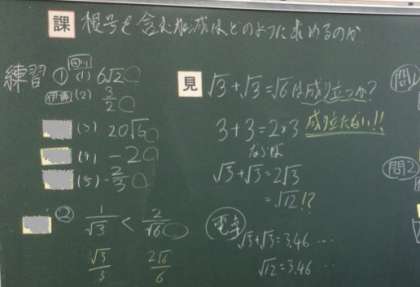 課 根号を含む加減はどのように求めるのか
練習 ① (1) 6√2
(2) 3/2
(3) 20√6
(4) -20
(5) -2/3
② 1/√3 < 2/√6
√3/3 2√6/6
見 √3+√3=√6は成り立つか?
3+3=2×3 成り立たない!!
ならば
√3+√3=2√3
=√12!?
電卓 √3+√3=3.46…
√12=3.46…
問1
問2